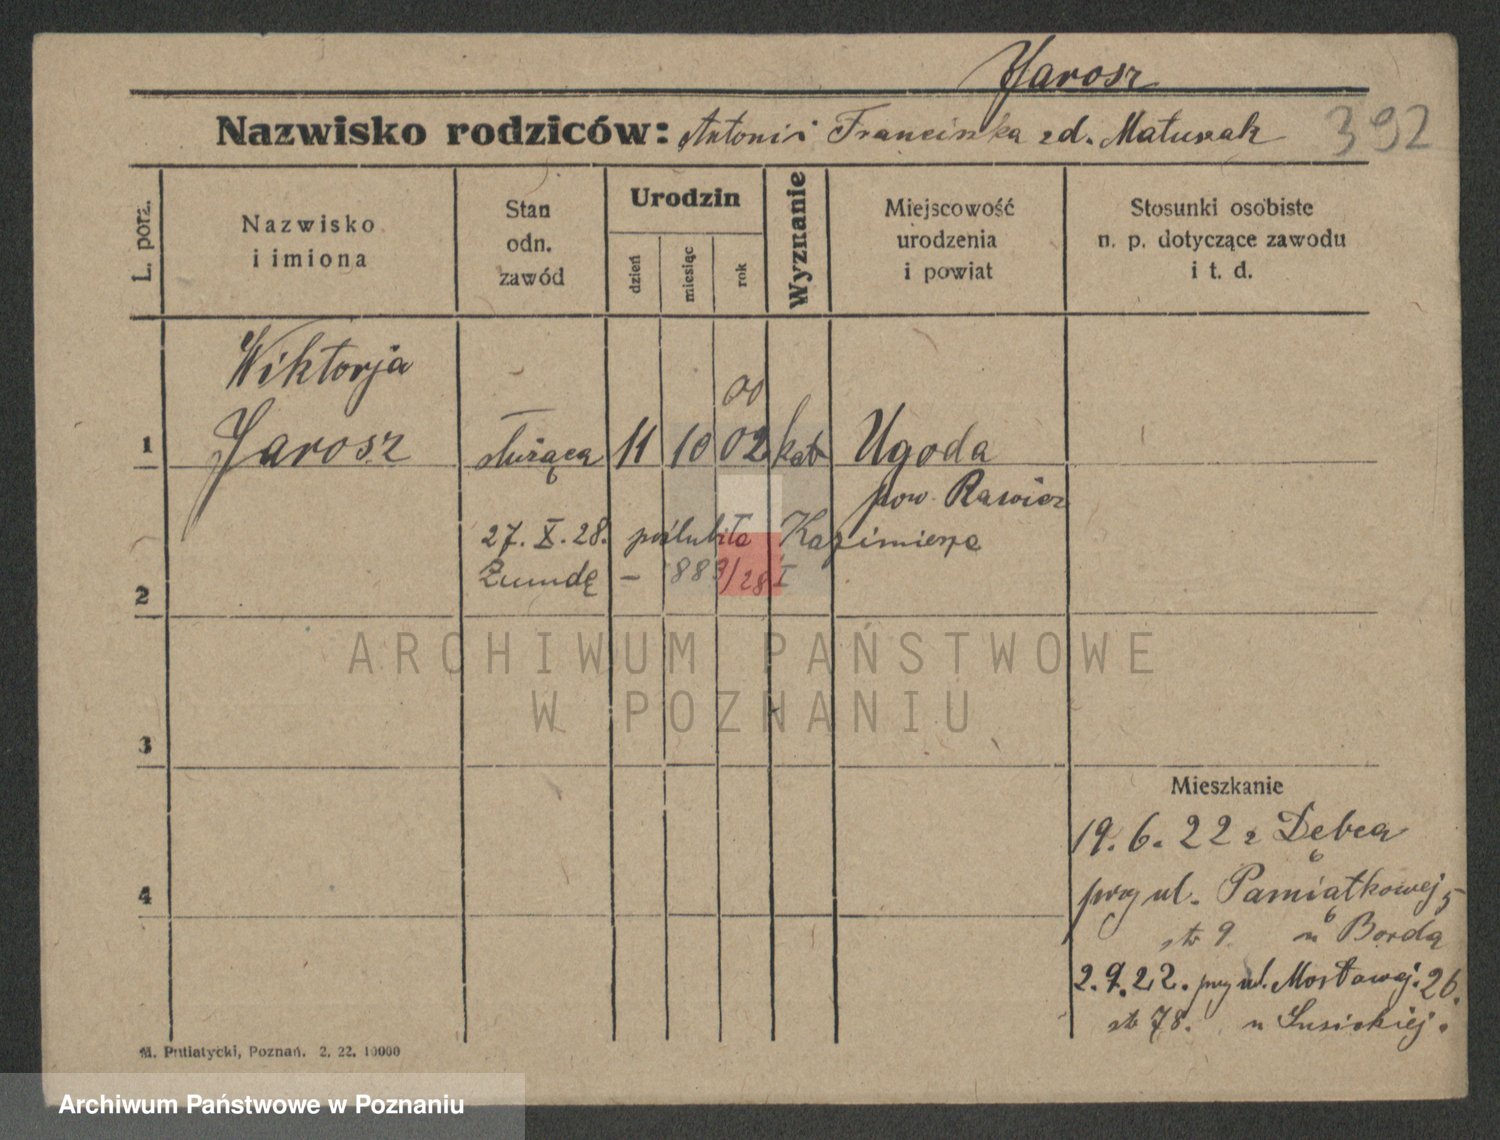 Jarosz
Nazwisko rodziców: Antoni i Franciszka zd. Matuszak 392
L. porz.
Nazwisko
i imiona
Stan
odn.
zawód
Urodzin
dzień
miesiąc
rok
Wyznanie
Miejscowość
urodzenia
i powiat
Stosunki osobiste
n. p. dotyczące zawodu
i t. d.
Wiktorja
00
1 Jarosz służąca 11 10 02 kat Ugoda
pow. Rawicz
27. X. 28. poślubiła Kazimierza
Żumdę – 889/28 I
2
ARCHIWUM PAŃSTWOWE
W POZNANIU
3
Mieszkanie
19. 6. 22 z Dębca
4 przy ul. Pamiątkowej 5
str 9. u Borda
2. 9. 22. przy ul. Mostowej. 26.
str 78. u Susickiej.
M. Putiatycki, Poznań. 2. 22. 10000
Archiwum Państwowe w Poznaniu